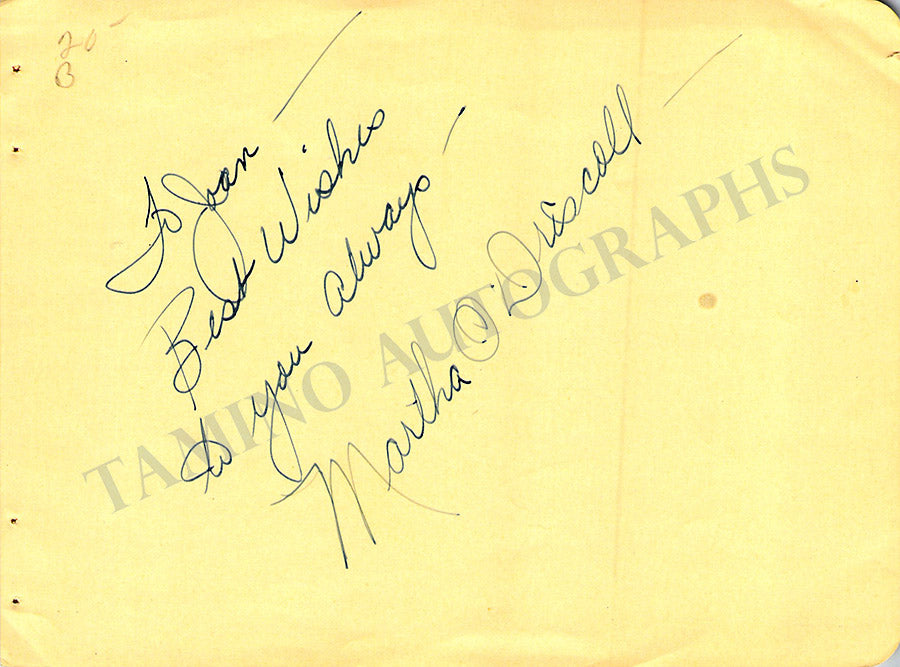 20-
B
To Joan —
Best Wishes
to you always —
Martha O'Driscoll —
TAMINO AUTOGRAPHS